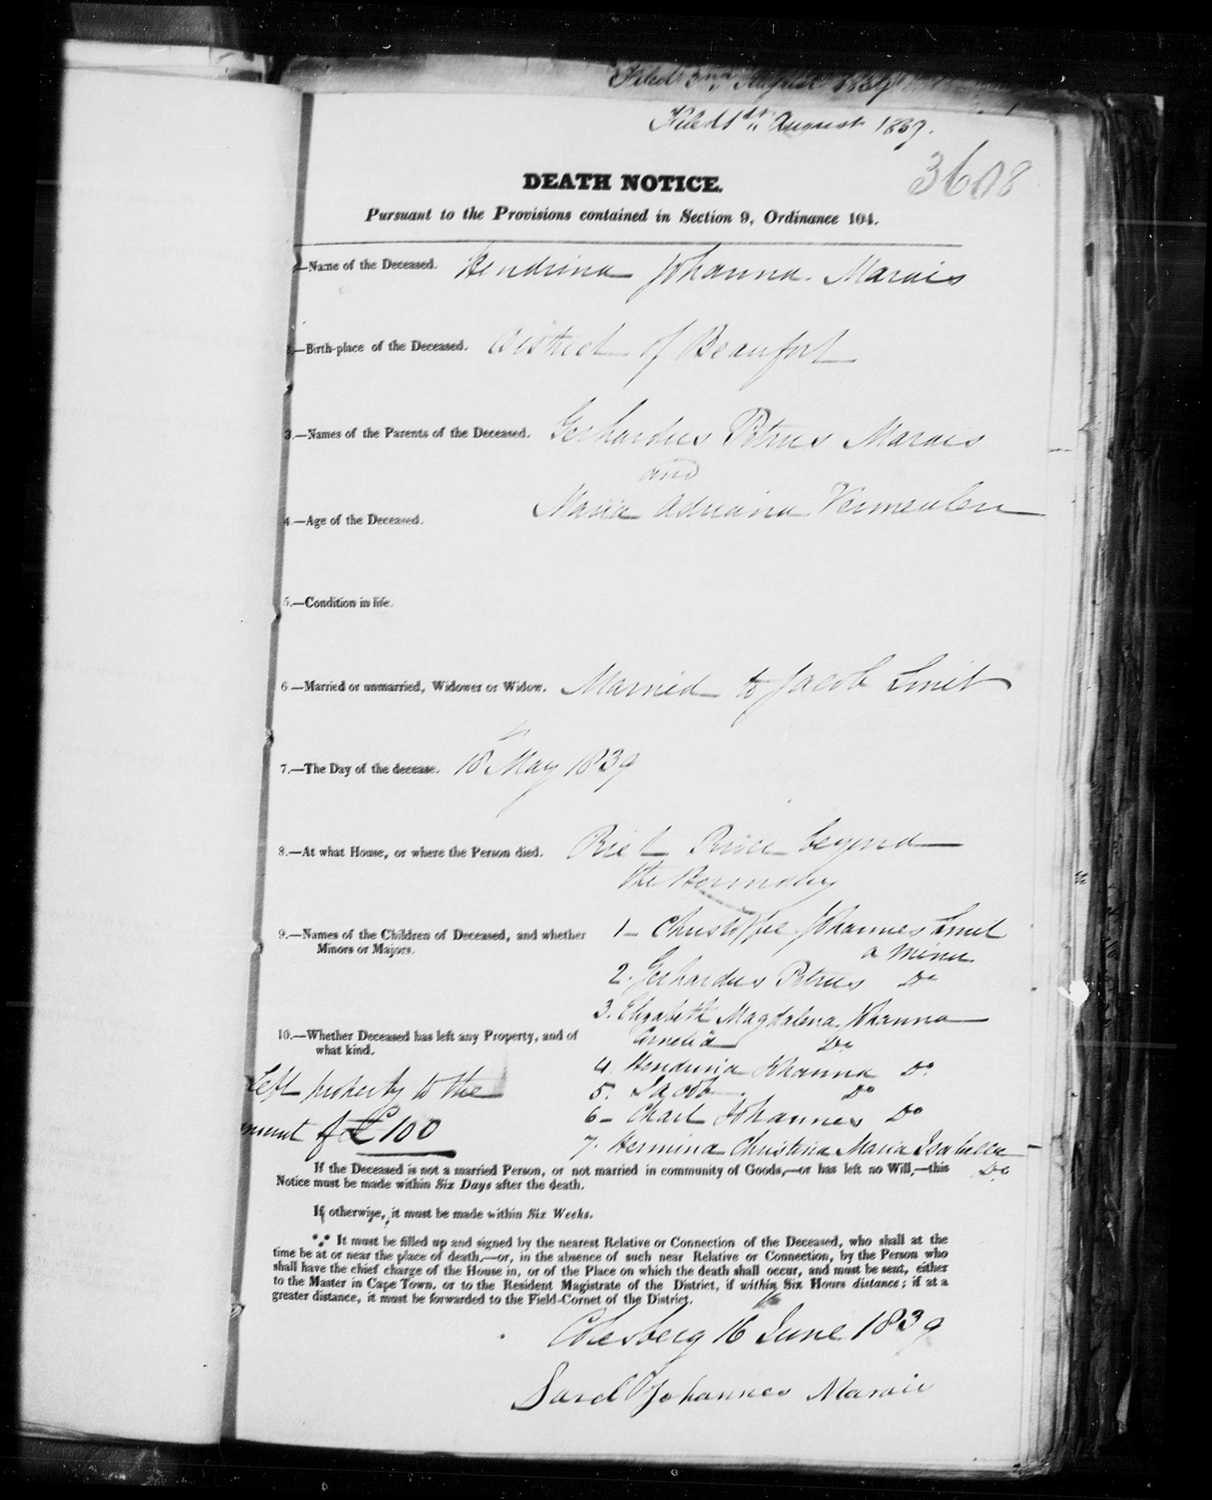 Filed 2nd August 1839
Filed 1st August 1839.
3608
DEATH NOTICE.
Pursuant to the Provisions contained in Section 9, Ordinance 104.
—Name of the Deceased. Hendrina Johanna Marais
—Birth-place of the Deceased. District of Beaufort
3.—Names of the Parents of the Deceased. Gerhardus Petrus Marais
and
Maria Adriana Vermeulen
4.—Age of the Deceased.
5.—Condition in life.
6.—Married or unmarried, Widower or Widow. Married to Jacob Smit
7.—The Day of the decease. 18 May 1839
8.—At what House, or where the Person died. Riet River beyond
the Boundary
9.—Names of the Children of Deceased, and whether
Minors or Majors.
1– Christoffel Johannes Smit
a Minor
2. Gerhardus Petrus Do
3. Elizabeth Magdalena Johanna
Cornelia Do
10.—Whether Deceased has left any Property, and of
what kind.
4. Hendrina Johanna Do.
5. Jacob Do
6– Charl Johannes Do
7. Hermina Christina Maria Isabella
Do
Left property to the
amount of £100
If the Deceased is not a married Person, or not married in community of Goods,—or has left no Will,—this
Notice must be made within Six Days after the death.
If otherwise, it must be made within Six Weeks.
*** It must be filled up and signed by the nearest Relative or Connection of the Deceased, who shall at the
time be at or near the place of death,—or, in the absence of such near Relative or Connection, by the Person who
shall have the chief charge of the House in, or of the Place on which the death shall occur, and must be sent, either
to the Master in Cape Town, or to the Resident Magistrate of the District, if within Six Hours distance; if at a
greater distance, it must be forwarded to the Field-Cornet of the District.
Colesberg 16 June 1839
Sarel Johannes Marais